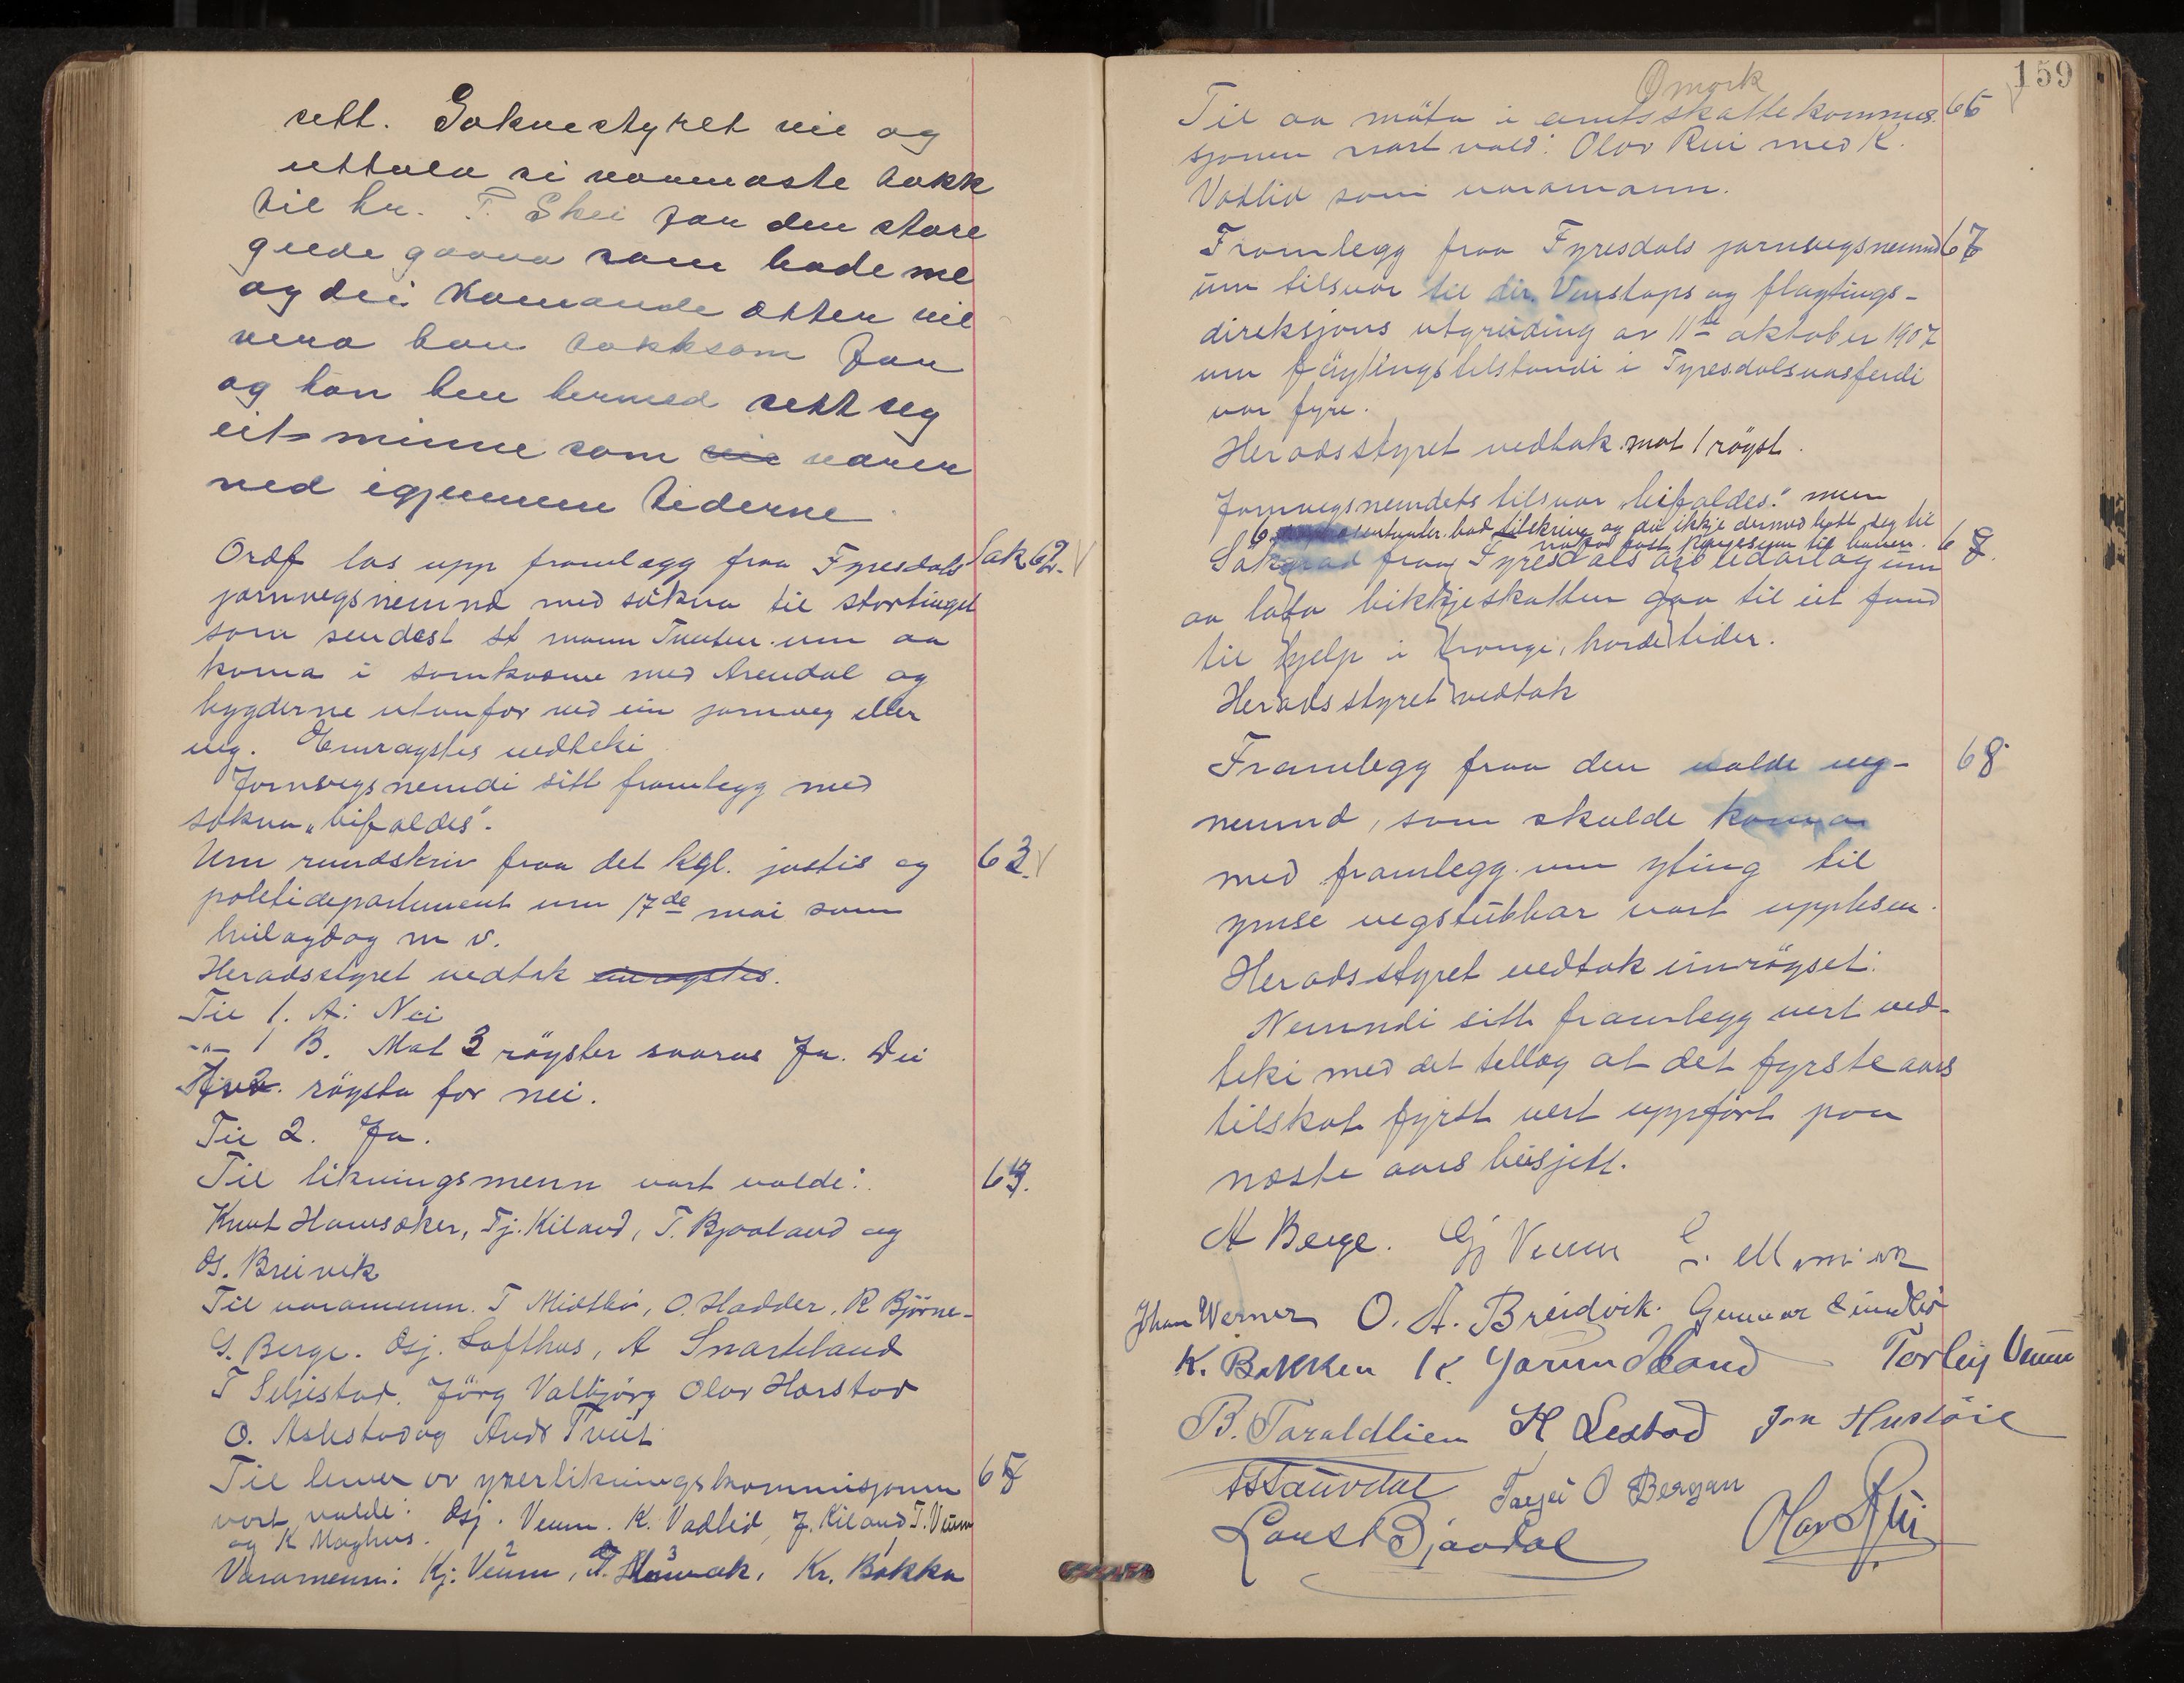 sett. Soknestyret vil og
uttala si varmaste takk
til hr. T. Skei for den store
gilde gaava som baade me
og dei komande ætter vil
vera han takksam for
og han hev hermed sett seg
eit minne som varer
ned igjennem tiderne
Ordf las upp framlegg fraa Fyresdals Sak 62.
jarnvegsnemnd med sökna til stortinget
som sendest st mann Tveiten um aa
koma i samkome med Arendal og
bygderne utanfor ved ein jarnveg eller
veg. Einrøystes vedteki
Jarnvegsnemdi sitt framlegg med
sökna „bifaldes”.
Um rundskriv fraa det kgl. justis og 63.
politidepartement um 17de mai som
heilagdag m v.
Heradsstyret vedtok einrøystes.
Til 1. A: Nei
-"- 1 B. Mot 3 röyster svaras Ja. Dei
röysta for nei.
Til 2. Ja.
Til likningsmenn vart valde: 64.
Knut Haumsaker, Tj. Kiland, T. Bjaaland og
O. Breivik
Til varamenn. T Midtbö, O. Hadder, R Björne-
G. Berge. Osj. Lofthus, A Snarteland
T Seljestad. Jörg Valbjörg Olav Harstad
O. Askestad og Andr Tveit
Til lemer av yverlikningskommisjonen 65
vart valde: Osj. Veum. K. Vadlid, J. Kiland T. Veum
og K Moghus.
Varamenn: Kj. Veum, Kr. Bakka
159
Ømork
Til aa möta i amtsskattekommis- 66
sjonen vart vald: Olav Rui med K.
Vadlid som varamann.
Framlegg fraa Fyresdals jarnvegsnemnd 67
um tilsvar til dir. Venstøps og fløytings-
direksjons utgreiding av 11te oktober 1907
um fløytingstilstandi i Fyresdalsvasferdi
var fyre.
Heradsstyret vedtok mot 1 röyst.
Jarnvegsnemdets tilsvar „bifaldes.” men
bad tilskrive og dei ikkje dermed batt seg til
Söknad fraa Fyresdals um 68.
aa lata bikkjeskatten gaa til eit fond
til hjelp i tronge, harde tider.
Heradsstyret vedtok
Framlegg fraa den valde veg- 68
nemnd, som skulde koma
med framlegg um yting til
ymse vegstubbar vart upplesen.
Heradsstyret vedtok einröyset:
Nemndi sitt framlegg vert ved-
teki med det tillæg at det fyrste aars
tilskot fyrst vert uppfört paa
næste aars büsjett.
A Berge. Gj Veum
Johan Werner O. A. Breidvik. Gunnar
K. Bakken K. Torleiv Veum
B. Taraldlien K Lestad Jon Hustöil
Tarjei O Bergan
Olav Rui